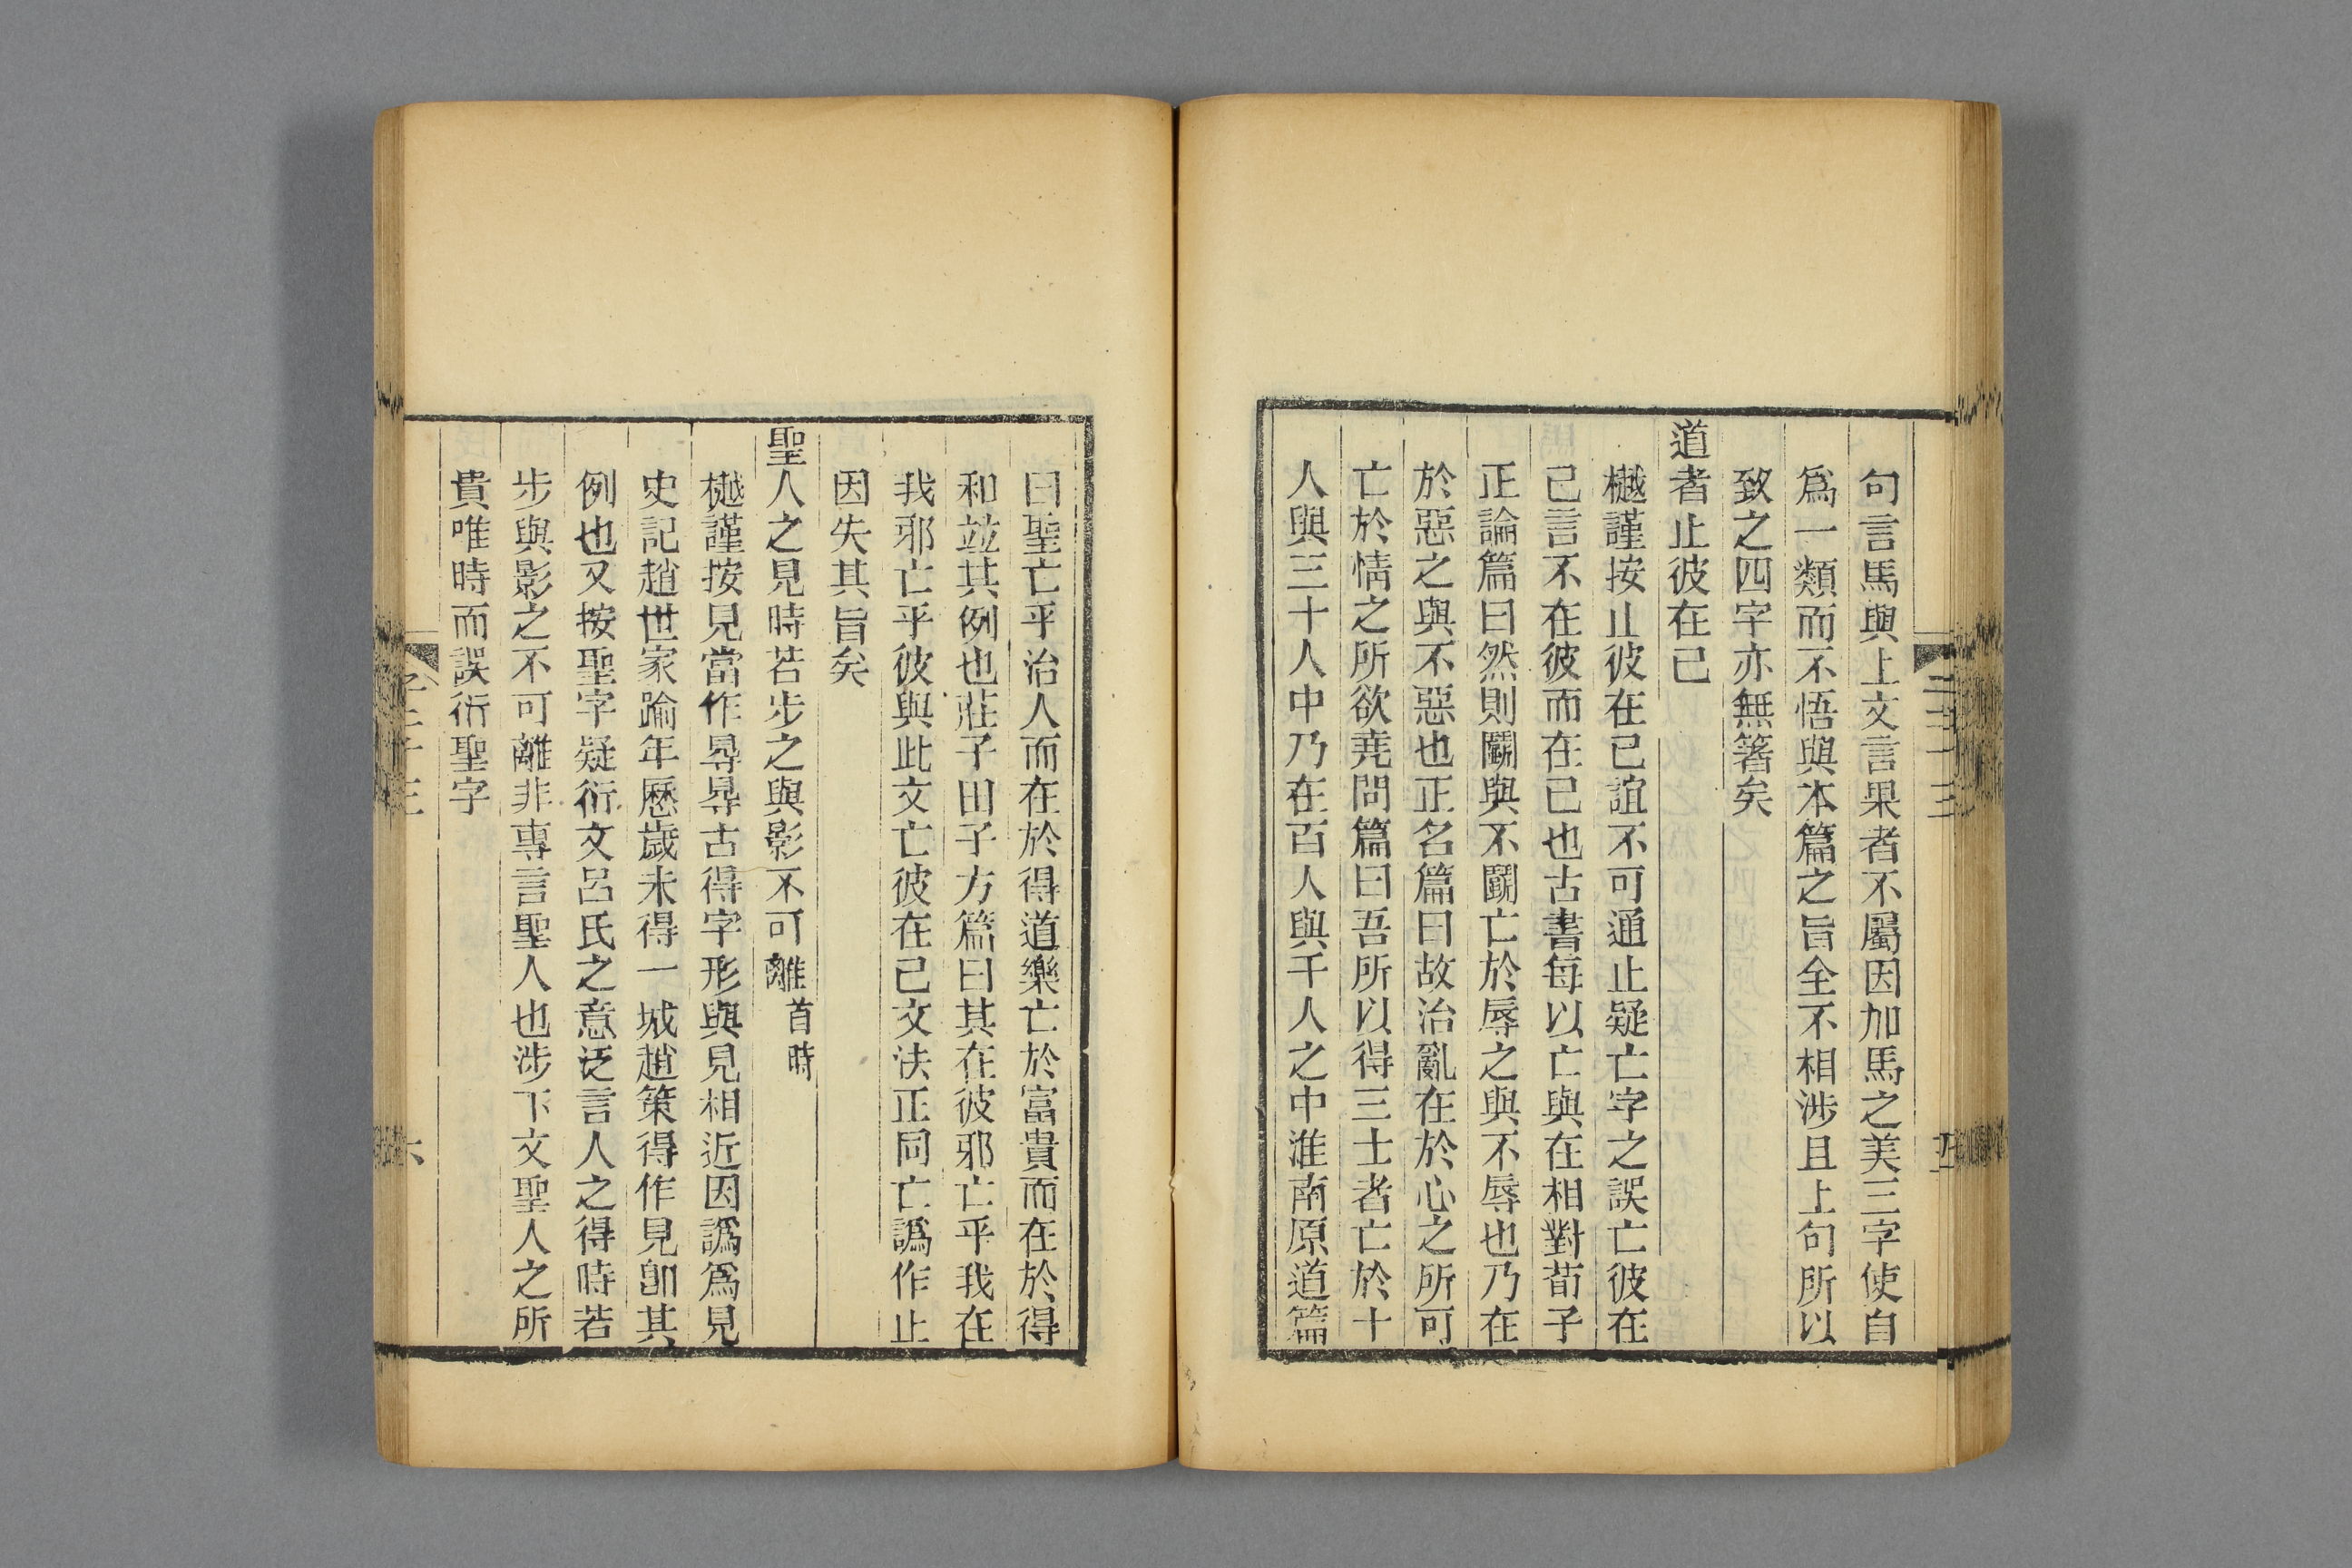 句言馬與上文言果者不屬因加馬之美三字使自
爲一類而不悟與本篇之旨全不相涉且上句所以
致之四字亦無箸矣
道者止彼在己
樾謹按止彼在已誼不可通止疑亡字之誤亡彼在
己言不在彼而在己也古書每以亡與在相對荀子
正論篇曰然則鬭與不鬭亡於辱之與不辱也乃在
於惡之與不惡也正名篇曰故治亂在於心之所可
亡於情之所欲堯問篇曰吾所以得三士者亡於十
人與三十人中乃在百人與千人之中淮南原道篇
曰聖亡乎治人而在於得道樂亡於富貴而在於得
和竝其例也莊子田子方篇曰其在彼邪亡乎我在
我邪亡乎彼與此文亡彼在己文法正同亡譌作止
因失其旨矣
聖人之見時若步之與影不可離首時
樾謹按見當作㝵㝵古得字形與見相近因譌爲見
史記趙世家踰年歷歲未得一城趙策得作見卽其
例也又按聖字疑衍文呂氏之意泛言人之得時若
步與影之不可離非專言聖人也涉下文聖人之所
貴唯時而誤衍聖字